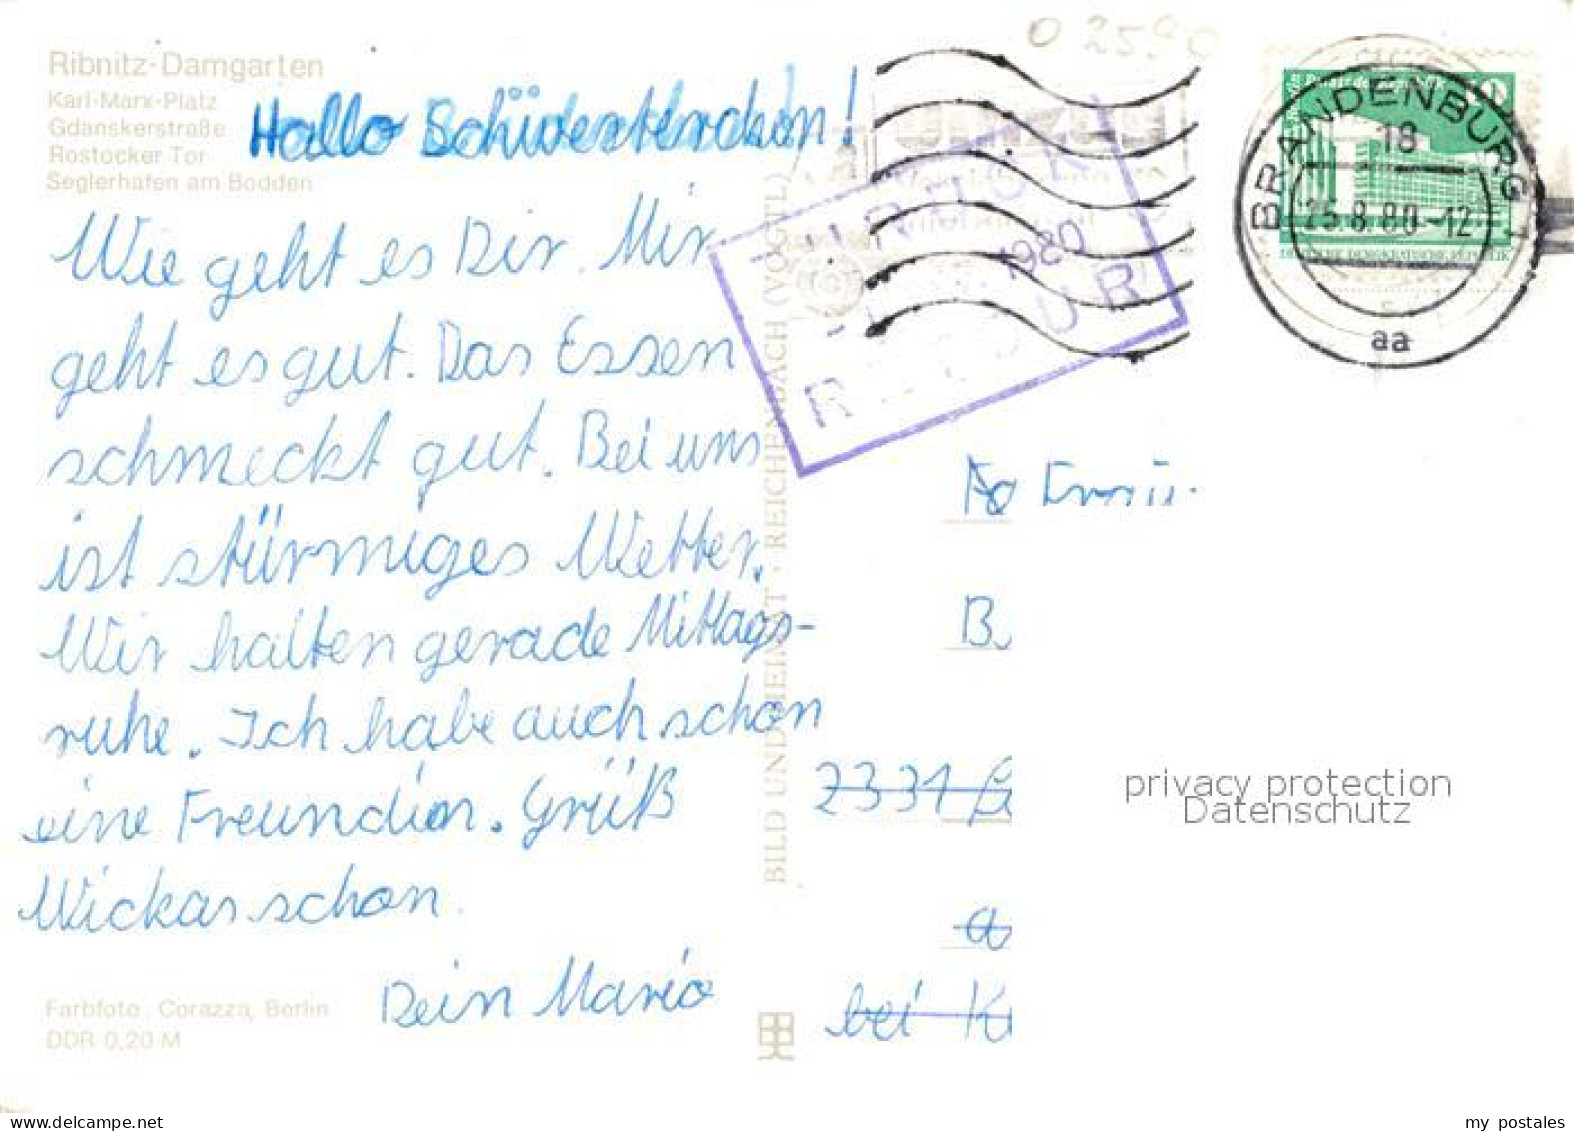 Ribnitz-Damgarten
Karl-Marx-Platz
Gdanskerstraße
Rostocker Tor
Seglerhafen am Bodden
Hallo Schüvesterchen!
Wie geht es Dir. Mir
geht es gut. Das Essen
schmeckt gut. Bei uns
ist stürmiges Wetter.
Wir halten gerade Mittags-
ruhe. Ich habe auch schon
eine Freundin. Grüß
Wickas schon.
Dein Mario
Farbfoto: Corazza, Berlin
DDR 0,20 M
BILD UND HEIMAT · REICHENBACH (VOGTL)
ZURÜCK
1980
RETOUR
BRANDENBURG 1
18
25.8.80-12
aa
DEUTSCHE DEMOKRATISCHE REPUBLIK
B
2331 G
a
bei K
privacy protection
Datenschutz
www.delcampe.net
my_postales